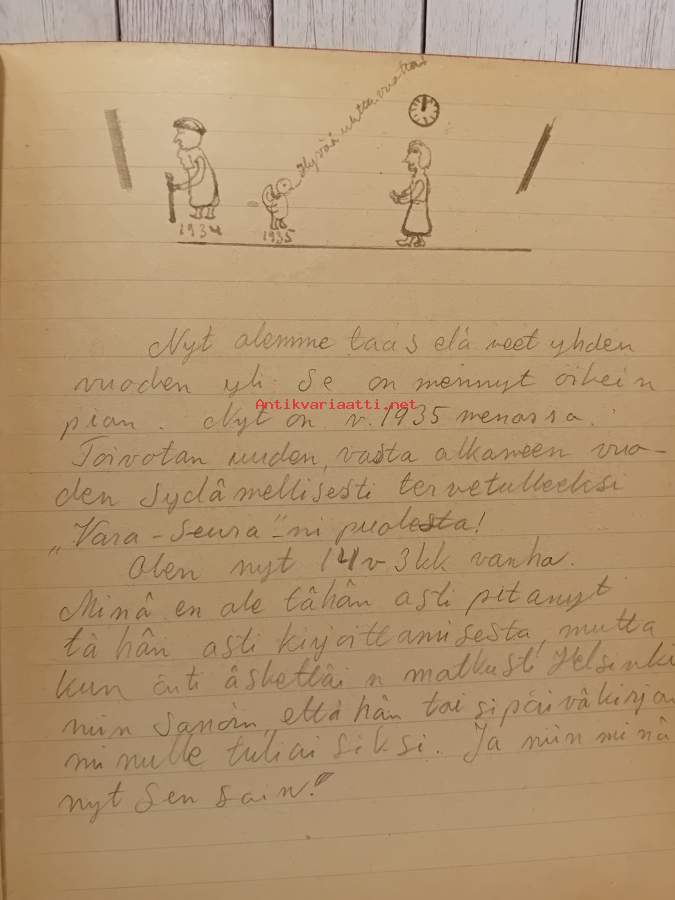 Hyvää uutta vuotta
1934
1935
Nyt olemme taas elä neet yhden
vuoden yli. Se on mennyt oikein
Antikvariaatti.net
pian. Nyt on v. 1935 menossa.
Toivotan uuden, vasta alkaneen vuo-
den sydämellisesti tervetulleeksi
„Vara-Seura"-ni puolesta!
Olen nyt 14 v 3 kk vanha.
Minä en ole tähän asti pitänyt
tähän asti kirjoittamisesta, mutta
kun äiti äskettäin matkusti Helsinki
niin sanoin, että hän toisi päiväkirjan
minulle tuliaisiksi. Ja niin minä
nyt sen sain!